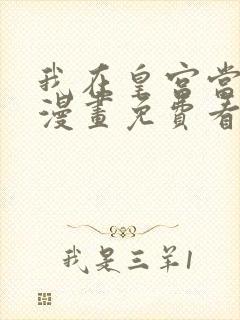 我在皇宫当
漫畫免費看
我是三羊1